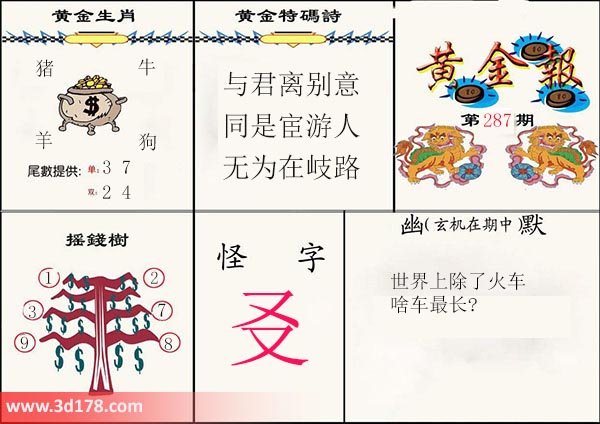 黄金生肖
猪 牛
$
羊 狗
尾數提供: 单: 3 7
双: 2 4
黄金特碼詩
与君离别意
同是宦游人
无为在歧路
黄金報
第287期
摇錢樹
① ②
③ ⑦
⑨ ⑧
$ $ $ $ $ $ $ $
怪 字
叐
幽(玄机在期中)默
世界上除了火车
啥车最长?
www.3d178.com